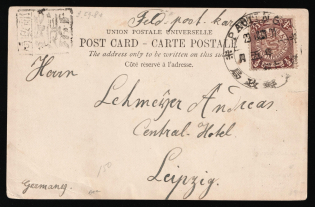 Feldpostkarte
UNION POSTALE UNIVERSELLE
POST CARD - CARTE POSTALE
The address only to be written on this side
Côté reservé à l'adresse.
Herrn
Lehmeÿer Andreas
Central-Hotel
Leipzig.
Germany